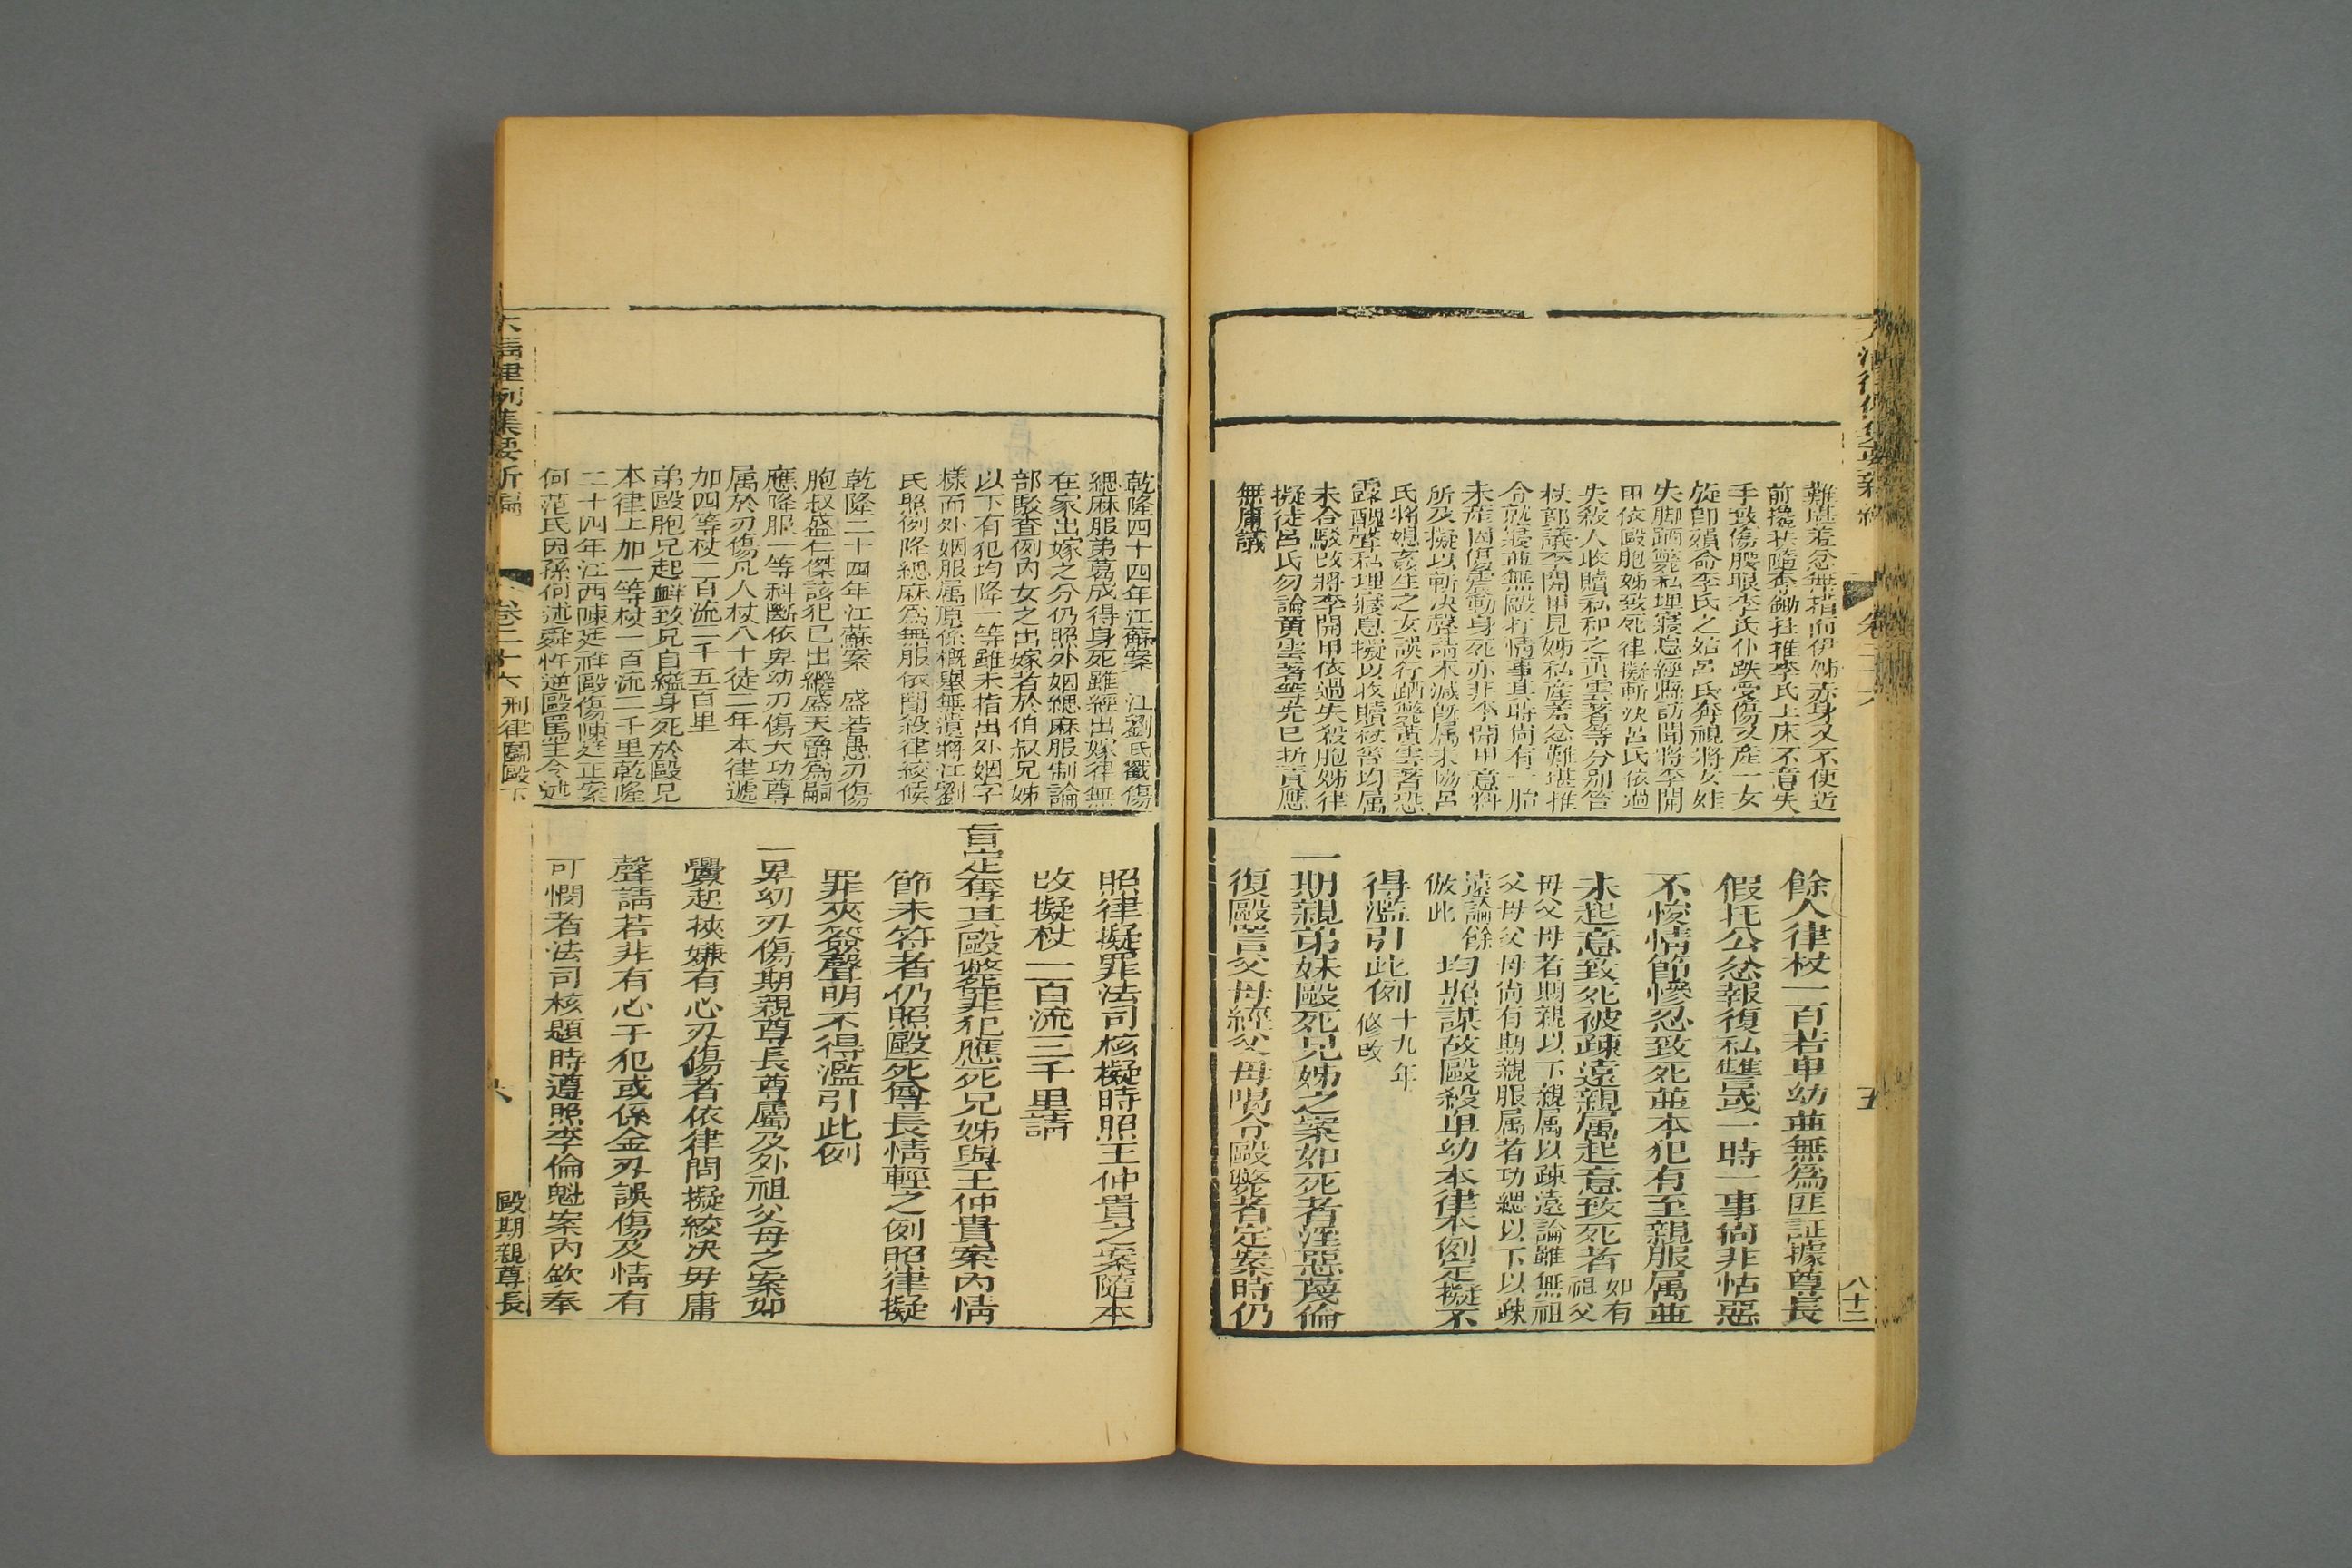 難堪羞忿無措而伊姊赤身又不便近
前攙扶隨拿鋤拄推李氏上床不意失
手致傷臀眼李氏仆跌受傷又產一女
旋卽殞命李氏之姑呂氏奔視將女娃
失脚踏斃私埋寢息經縣訪聞將李開
甲依毆胞姊致死律擬斬決呂氏依過
失殺人收贖私和之黃雲著等分別笞
杖部議李開甲見姊私產羞忿難堪推
令就寢並無毆打情事其時尚有一胎
未產因傷墜動身死亦非李開甲意料
所及擬以斬決聲請末減旣属未協呂
氏將媳姦生之女誤行踏斃黃雲著恐
露醜聲私埋寢息擬以收贖杖笞均属
未合駁改將李開甲依過失殺胞姊律
擬徒呂氏勿論黃雲著等先已折責應
無庸議
餘人律杖一百若卑幼並無為匪証據尊長
假托公忿報復私讐或一時一事尚非怙惡
不悛情節慘忍致死並本犯有至親服属並
未起意致死被疎遠親属起意致死者 如有祖父
母父母者期親以下親属以疎遠論雖無祖
父母父母尚有期親服属者功緦以下以疎
遠論餘倣此 均照謀故毆殺卑幼本律本例定擬不
得濫引此例 十九年修改
一期親弟妹毆死兄姊之案如死者淫惡蔑倫
復毆詈父母經父母喝令毆斃者定案時仍
大清律例集要新編
卷二十六
五
八十二
乾隆四十四年江蘇案 江劉氏戳傷
緦麻服弟葛成得身死雖經出嫁律無
在家出嫁之分仍照外姻緦麻服制論
部駁查例內女之出嫁者於伯叔兄姊
以下有犯均降一等雖未指出外姻字
樣而外姻服属原係概舉無遺將江劉
氏照例降緦麻為無服依鬭殺律絞候
乾隆二十四年江蘇案 盛若愚刃傷
胞叔盛仁傑該犯已出繼盛天爵為嗣
應降服一等科斷依卑幼刃傷大功尊
属於刃傷凡人杖八十徒二年本律遞
加四等杖一百流二千五百里
弟毆胞兄起衅致兄自縊身死於毆兄
本律上加一等杖一百流二千里乾隆
二十四年江西陳廷祥毆傷陳廷正案
何范氏因孫何述舜忤逆毆罵主令述
照律擬罪法司核擬時照王仲貴之案隨本
改擬杖一百流三千里請
旨定奪其毆斃罪犯應死兄姊與王仲貴案內情
節未符者仍照毆死尊長情輕之例照律擬
罪夾簽聲明不得濫引此例
一卑幼刃傷期親尊長尊屬及外祖父母之案如
釁起挾嫌有心刃傷者依律問擬絞決毋庸
聲請若非有心干犯或係金刃誤傷及情有
可憫者法司核題時遵照李倫魁案內欽奉
大清律例集要新編
卷二十六 刑律鬭毆下
六
毆期親尊長